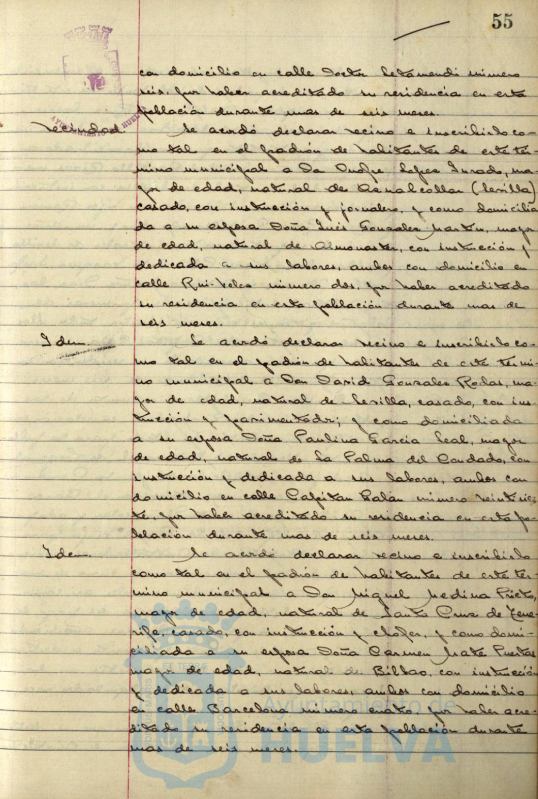 55
con domicilio en calle Doctor Letamendi número
seis, por haber acreditado su residencia en esta
población durante mas de seis meses.
Vecindad. Se acordó declarar vecino e inscribirlo co-
mo tal en el padrón de habitantes de este tér-
mino municipal a Dn Onofre López Jurado, ma-
yor de edad, natural de Aznalcollar (Sevilla)
casado, con instrucción y jornalero, y como domicilia-
da a su esposa Doña Inés Gonzalez Martin, mayor
de edad, natural de Almonaster, con instrucción y
dedicada a sus labores, ambos con domicilio en
calle Rui-Velez número dos, por haber acreditado
su residencia en esta población durante mas de
seis meses.
Idem. Se acordó declarar vecino e inscribirlo co-
mo tal en el padrón de habitantes de este térmi-
no municipal a Don David Gonzalez Rodas, ma-
yor de edad, natural de Sevilla, casado, con ins-
trucción y pavimentador; y como domiciliada
a su esposa Doña Paulina Garcia Leal, mayor
de edad, natural de La Palma del Condado, con
instrucción y dedicada a sus labores, ambos con
domicilio en calle Capitan Galán número veintisie-
te, por haber acreditado su residencia en esta po-
blación durante mas de seis meses.
Idem. Se acordó declarar vecino e inscribirlo
como tal en el padrón de habitantes de este tér-
mino municipal a Don Miguel Medina Prieto,
mayor de edad, natural de Santa Cruz de Tene-
rife, casado, con instrucción y chofer, y como domi-
ciliada a su esposa Doña Carmen Maté Puertas
mayor de edad, natural de Bilbao, con instrucción
y dedicada a sus labores, ambos con domicilio
en calle Barcelona número cuatro, por haber acre-
ditado su residencia en esta población durante
mas de seis meses.
Ayuntamiento de
HUELVA